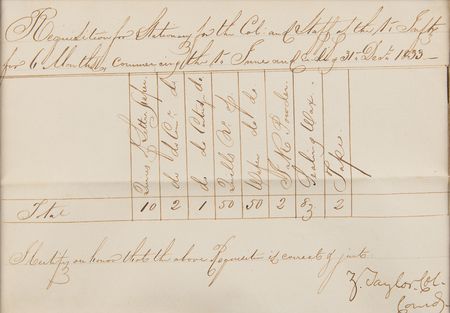 Requisition for Stationary for the Col. and Staff of the 1st Infty
for 6 Months, commencing the 1st June and Ending 31st Decr. 1833 —
Quires of Lettr Paper.
do do do
do do do
Quills No.
Wafers do do
Ink Powder.
Sealing Wax.
Tape.
Total 10 2 1 50 50 2 2
I certify on honor that the above Requisition is correct & just.
Z. Taylor, Col.
Comdg.